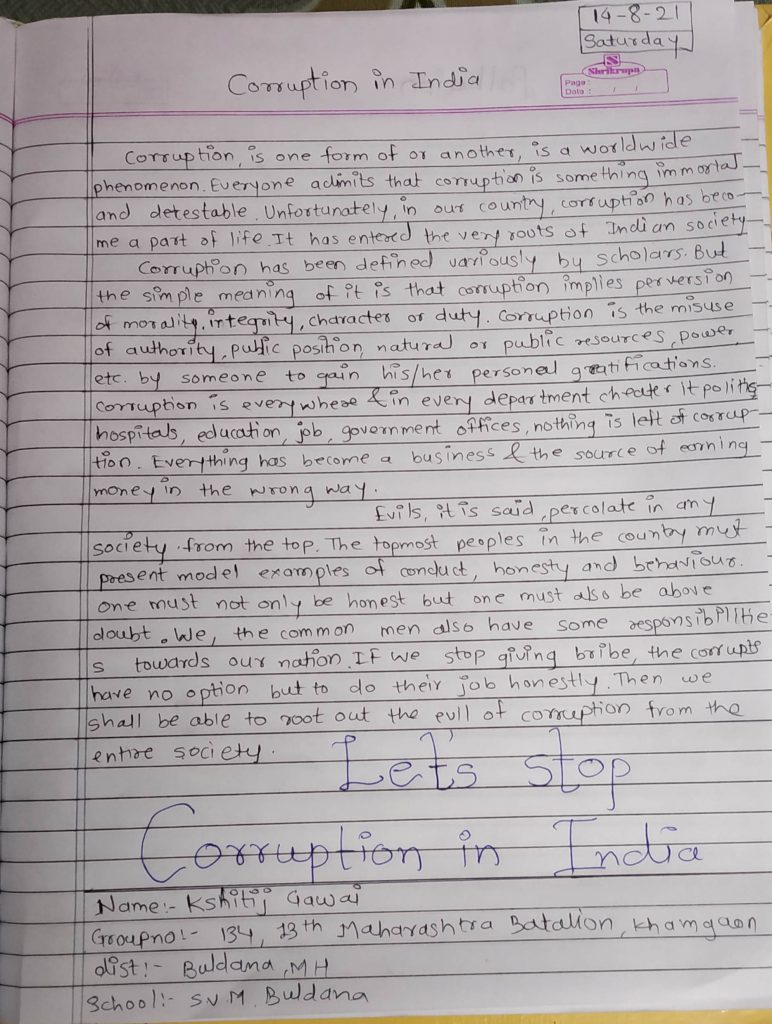 14-8-21
Saturday
S
Shrikrupa
Page :
Date : / /
Corruption in India
Corruption, is one form of or another, is a worldwide
phenomenon. Everyone admits that corruption is something immortal
and detestable. Unfortunately, in our country, corruption has beco-
me a part of life. It has entered the very roots of Indian society
Corruption has been defined variously by scholars. But
the simple meaning of it is that corruption implies perversion
of morality, integrity, character or duty. Corruption is the misuse
of authority, public position, natural or public resources, power,
etc. by someone to gain his/her personal gratifications.
Corruption is everywhere & in every department cheater it politics
hospitals, education, job, government offices, nothing is left of corrup-
tion. Everything has become a business & the source of earning
money in the wrong way.
Evils, it is said, percolate in any
society from the top. The topmost peoples in the country must
present model examples of conduct, honesty and behaviour.
one must not only be honest but one must also be above
doubt. We, the common men also have some responsibilitie
s towards our nation. If we stop giving bribe, the corrupts
have no option but to do their job honestly. Then we
shall be able to root out the evil of corruption from the
entire society.
Let's stop
Corruption in India
Name:- Kshitij Gawai
Groupno:- 134, 13th Maharashtra Batalion, Khamgaon
dist:- Buldana, MH
School:- S.V.M. Buldana